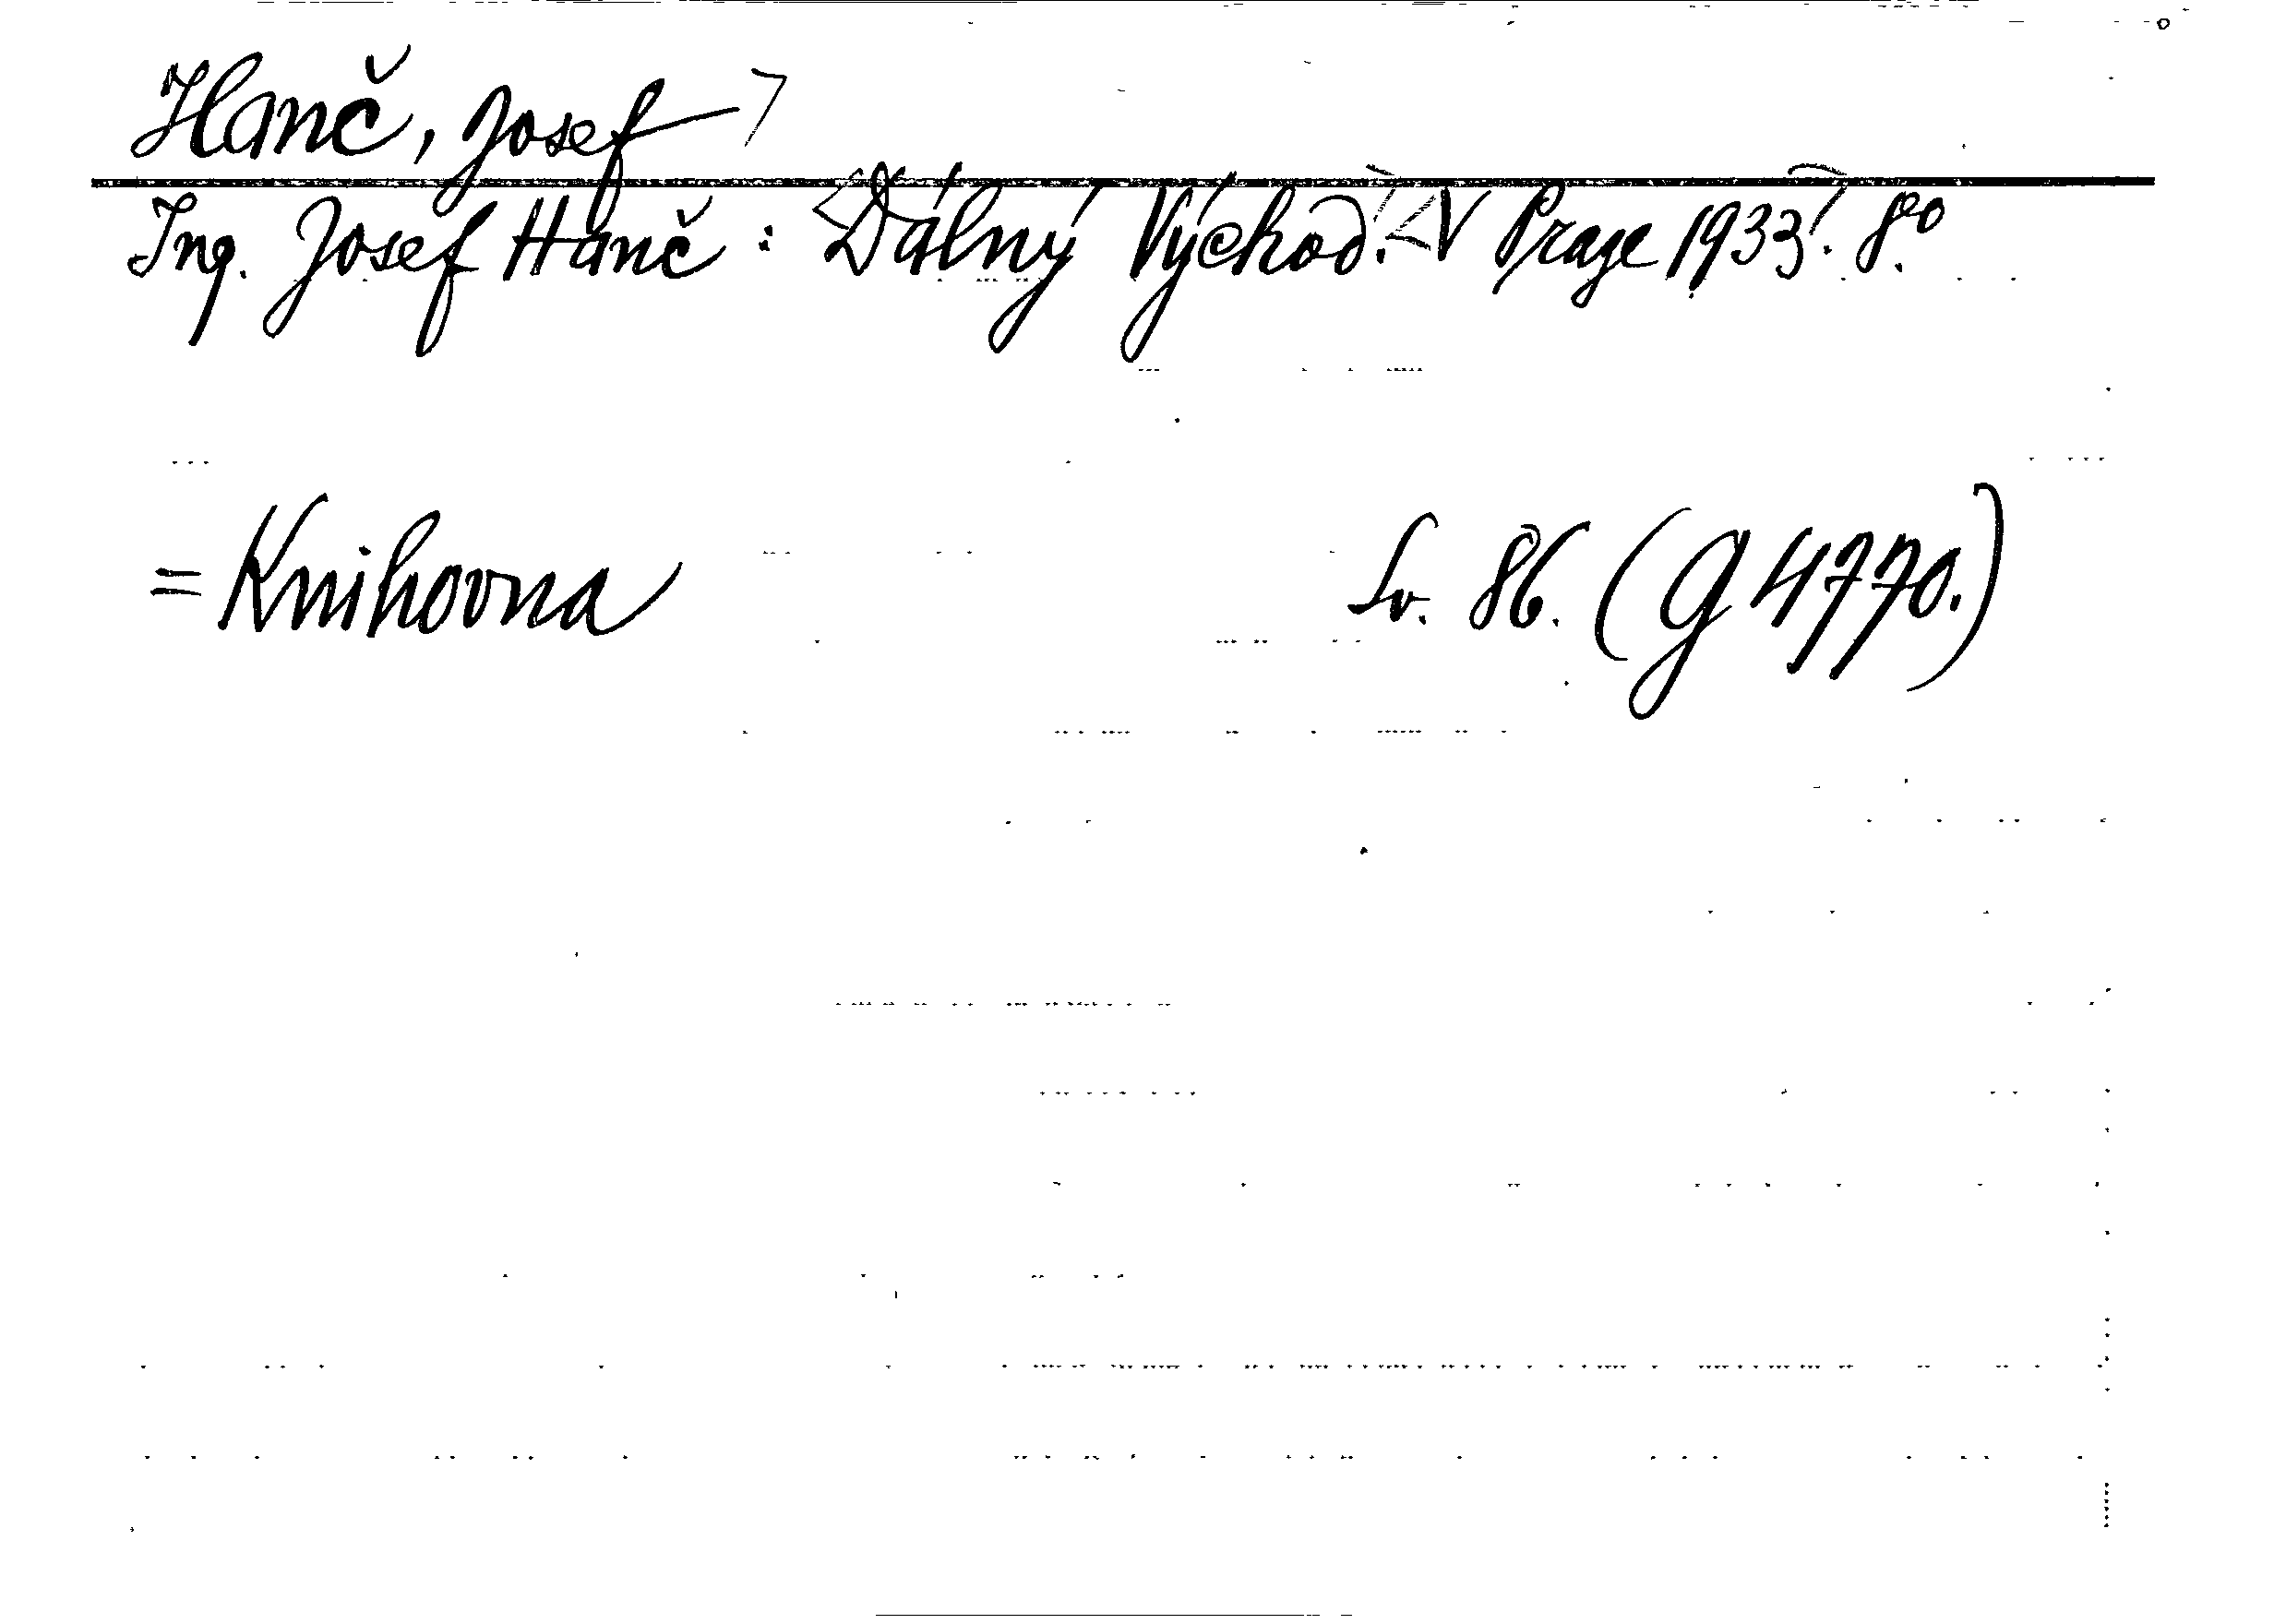 Hanč, Josef
Ing. Josef Hanč: Dálný Východ. V Praze 1933. 8°.
= Knihovna Sv. 86. (G 4770.)